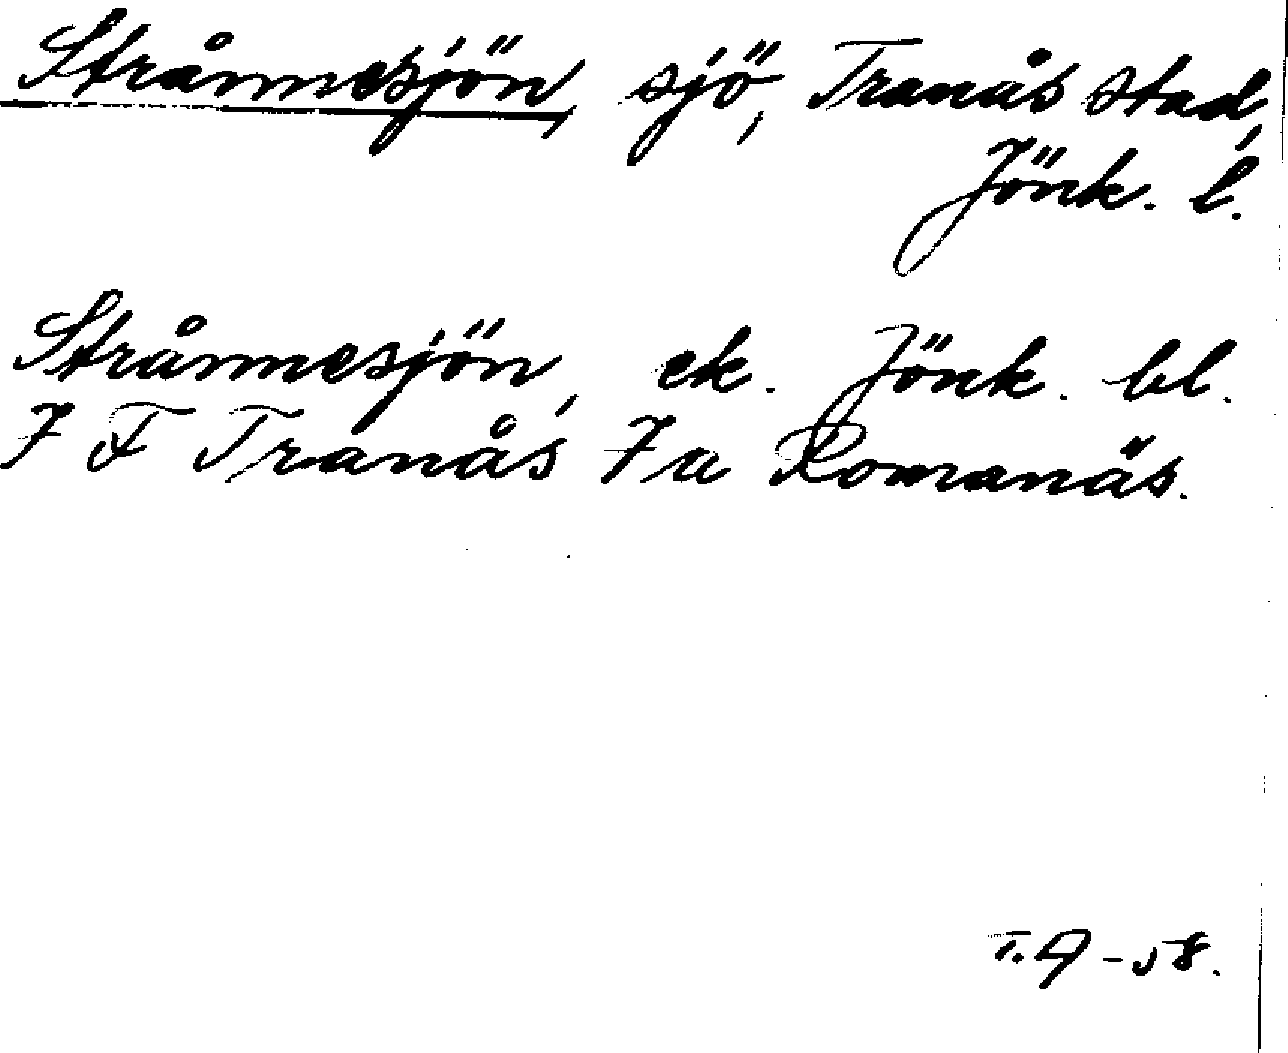 Strånnesjön, sjö, Tranås stad,
Jönk. l.
Strånnesjön, ek. Jönk. bl.
7 F Tranås, 7 a Romanäs.
T.A -58.